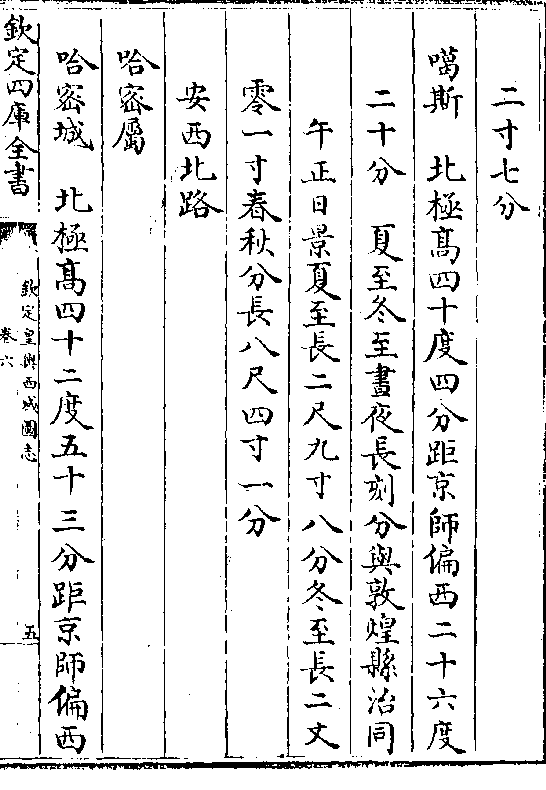 二寸七分
噶斯　北極髙四十度四分距京師偏西二十六度
二十分　夏至冬至晝夜長刻分與敦煌縣治同
午正日景夏至長二尺九寸八分冬至長二丈
零一寸春秋分長八尺四寸一分
安西北路
哈密屬
哈密城　北極髙四十二度五十三分距京師偏西
欽定四庫全書
欽定皇輿西域圖志
卷六
五